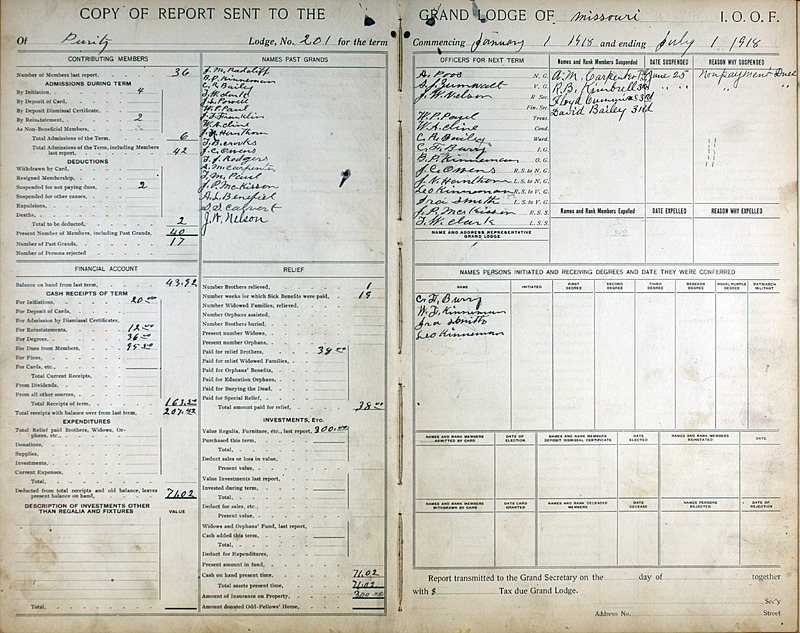 COPY OF REPORT SENT TO THE
Of Purity Lodge, No. 201 for the term
CONTRIBUTING MEMBERS
Number of Members last report, 36
ADMISSIONS DURING TERM
By Initiation, 4
By Deposit of Card,
By Deposit Dismissal Certificate,
By Reinstatement, 2
As Non-Beneficial Members,
Total Admissions of the Term, 6
Total Admissions of the Term, including Members last report, 42
DEDUCTIONS
Withdrawn by Card,
Resigned Membership,
Suspended for not paying dues, 2
Suspended for other causes,
Expulsions,
Deaths,
Total to be deducted, 2
Present Number of Members, including Past Grands, 40
Number of Past Grands, 17
Number of Persons rejected
NAMES PAST GRANDS
J. M. Radcliff
B. P. Kinneman
C. R. Bailey
J. W. Clark
J. L. Powell
W. P. Paul
J. T. Franklin
W. A. Cline
J. N. Hawthorn
T. Brooks
J. C. Owens
T. J. Rodgers
A. M. Carpenter
T. M. Paul
J. P. McKisson
A. L. Benefiel
S. S. Calvert
J. W. Nelson
FINANCIAL ACCOUNT
Balance on hand from last term, 43.92
CASH RECEIPTS OF TERM
For Initiations, 20.00
For Deposit of Cards,
For Admission by Dismissal Certificates,
For Reinstatements, 12.00
For Degrees, 36.00
For Dues from Members, 95.50
For Fines,
For Cards, etc.,
Total Current Receipts,
From Dividends,
From all other sources,
Total Receipts of term, 163.50
Total receipts with balance over from last term, 207.42
EXPENDITURES
Total Relief paid Brothers, Widows, Orphans, etc.,
Donations,
Supplies,
Investments,
Current Expenses,
Total,
Deducted from total receipts and old balance, leaves present balance on hand, 71.02
DESCRIPTION OF INVESTMENTS OTHER THAN REGALIA AND FIXTURES VALUE
Total,
RELIEF
Number Brothers relieved, 1
Number weeks for which Sick Benefits were paid, 19
Number Widowed Families relieved,
Number Orphans assisted,
Number Brothers buried,
Present number Widows,
Present number Orphans,
Paid for relief Brothers, 38.00
Paid for relief Widowed Families,
Paid for Orphans' Benefits,
Paid for Education Orphans,
Paid for Burying the Dead,
Paid for Special Relief,
Total amount paid for relief, 38.00
INVESTMENTS, Etc.
Value Regalia, Furniture, etc., last report, 300.00
Purchased this term,
Total,
Deduct sales or loss in value,
Present value,
Value Investments last report,
Invested during term,
Total,
Deduct for sales, etc.,
Present value,
Widows and Orphans' Fund, last report,
Cash added this term,
Total,
Deduct for Expenditures,
Present amount in fund,
Cash on hand present time, 71.02
Total assets present time, 71.02
Amount of Insurance on Property, 300.00
Amount donated Odd-Fellows' Home,
GRAND LODGE OF Missouri I. O. O. F.
Commencing January 1 1918 and ending July 1 1918
OFFICERS FOR NEXT TERM
N. G.
V. G.
J. W. Nelson R. Sec.
Fin. Sec.
W. P. Paul Treas.
W. A. Cline Cond.
C. R. Bailey Ward.
C. F. Burry I. G.
B. P. Kinneman O. G.
J. C. Owens R. S. to N. G.
J. N. Hawthorn L. S. to N. G.
Leo Kinneman R. S. to V. G.
Ira Smith L. S. to V. G.
J. P. McKisson R. S. S.
J. W. Clark L. S. S.
NAME AND ADDRESS REPRESENTATIVE GRAND LODGE
Names and Rank Members Suspended DATE SUSPENDED REASON WHY SUSPENDED
A. M. Carpenter June 25 Non payment Dues
R. B. Kimbrell 3rd " " " "
Floyd Cummins 3rd
David Bailey 3rd
Names and Rank Members Expelled DATE EXPELLED REASON WHY EXPELLED
NAMES PERSONS INITIATED AND RECEIVING DEGREES AND DATE THEY WERE CONFERRED
NAME INITIATED FIRST DEGREE SECOND DEGREE THIRD DEGREE REBEKAH DEGREE ROYAL PURPLE DEGREE PATRIARCH MILITANT
C. F. Burry
W. F. Kinneman
Ira Smith
Leo Kinneman
NAMES AND RANK MEMBERS ADMITTED BY CARD DATE OF ELECTION NAMES AND RANK MEMBERS DEPOSIT DISMISSAL CERTIFICATE DATE ELECTED NAMES AND RANK MEMBERS REINSTATED DATE
NAMES AND RANK MEMBERS WITHDRAWN BY CARD DATE CARD GRANTED NAMES AND RANK DECEASED MEMBERS DATE DECEASE NAMES PERSONS REJECTED DATE OF REJECTION
Report transmitted to the Grand Secretary on the day of together
with $ Tax due Grand Lodge.
Sec'y
Address No. Street